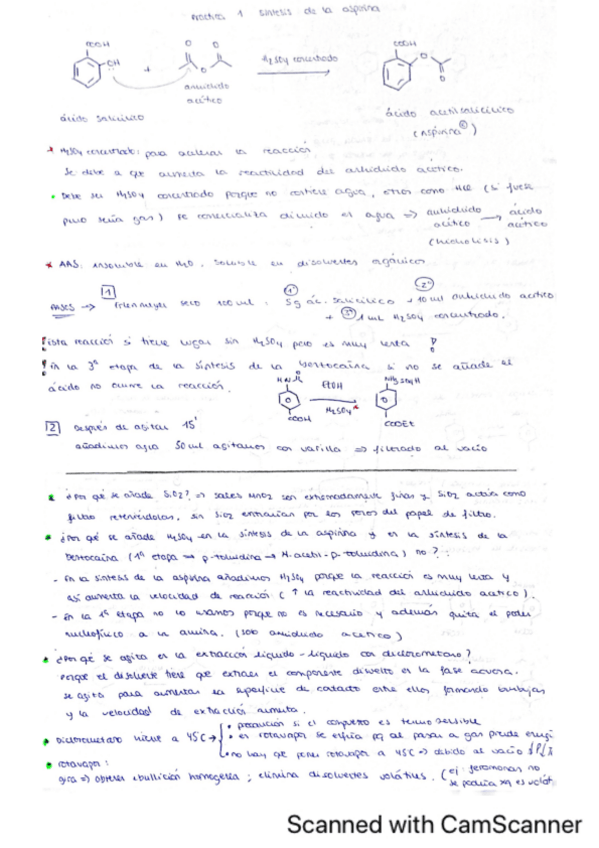 Práctica 1 síntesis de la aspirina
COOH
OH
+
O O
O
H₂SO₄ concentrado
COOH
O
O
anhídrido
acético
ácido salicílico
ácido acetilsalicílico
(Aspirina®)
* H₂SO₄ concentrado: para acelerar la reacción
se debe a que aumenta la reactividad del anhídrido acético.
• Debe ser H₂SO₄ concentrado porque no contiene agua, otros como HCl (si fuese
puro sería gas) se comercializa diluido en agua ⇒ anhídrido acético → ácido acético
(hidrólisis)
* AAS: insoluble en H₂O, soluble en disolventes orgánicos
1 1º 2º
FASES → Erlenmeyer seco 100 ml: 5g ác. salicílico + 10 ml anhídrido acético
+ 3º 1 ml H₂SO₄ concentrado.
Esta reacción sí tiene lugar sin H₂SO₄ pero es muy lenta
En la 3ª etapa de la síntesis de la benzocaína si no se añade el
ácido no ocurre la reacción.
EtOH
H₂SO₄
COOH
COOEt
2 Después de agitar 15'
añadimos agua 50 ml agitamos con varilla ⇒ filtrado al vacío
¿Por qué se añade SiO₂? ⇒ sales son extremadamente finas y SiO₂ actúa como
filtro reteniéndolas, sin SiO₂ entrarían por los poros del papel de filtro.
• ¿Por qué se añade H₂SO₄ en la síntesis de la aspirina y en la síntesis de la
benzocaína (1ª etapa → p-toluidina → N-acetil-p-toluidina) no?:
- En la síntesis de la aspirina añadimos H₂SO₄ porque la reacción es muy lenta y
así aumenta la velocidad de reacción (↑ la reactividad del anhídrido acético).
- En la 1ª etapa no lo usamos porque no es necesario y además quita el poder
nucleofílico a la amina. (solo anhídrido acético)
• ¿Por qué se agita en la extracción líquido-líquido con diclorometano?
Porque el disolvente tiene que extraer el componente disuelto en la fase acuosa.
se agita para aumentar la superficie de contacto entre ellos formando burbujas
y la velocidad de extracción aumenta.
• Diclorometano hierve a 45C → • precaución si el compuesto es termosensible
• en rotavapor se enfría pq al pasar a gas pierde
• no hay que poner rotavapor a 45C ⇒ debido al vacío
• rotavapor:
gira ⇒ obtener ebullición homogénea; elimina disolventes volátiles. (ej: feromonas no
se podría pq es volát
Scanned with CamScanner